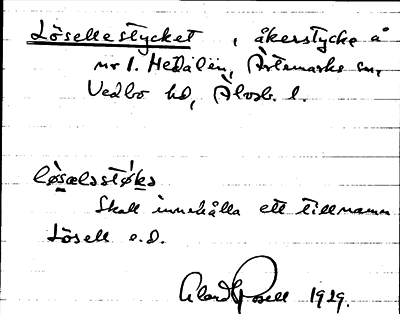 Lösellestycket, åkerstycke å
nr 1. Hedålen, Ärtemarks sn,
Vedbo hd, Älvsb. l.
løsælsstøks
Skall innehålla ett tillnamn
Lösell e.d.
1929.